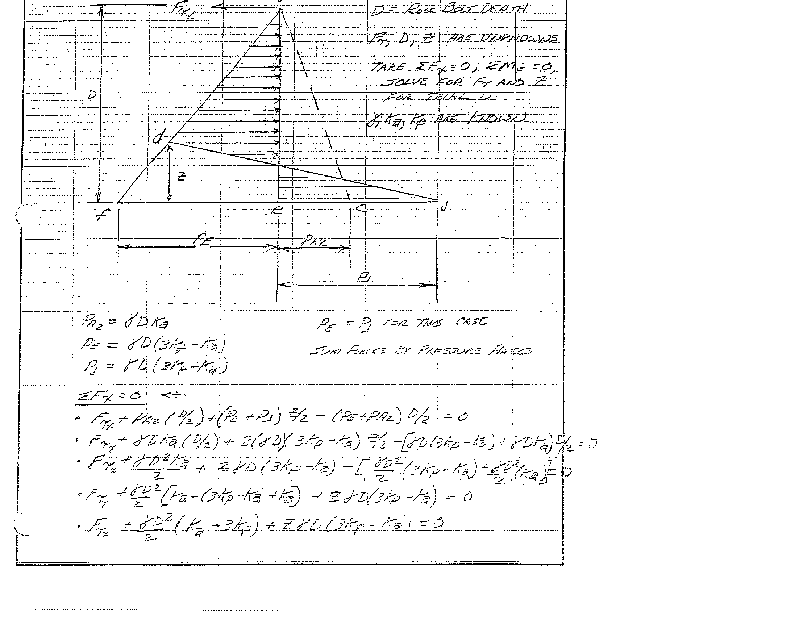 D = POLE BUTT DEPTH
D, Z ARE UNKNOWNS
TAKE ΣFx=0, ΣM=0,
SOLVE FOR AND Z
FOR
Ka, Kp ARE KNOWN
D
d
Z
f
e
c
J
PE
PAZ
PJ
PA2 = γDKa
PE = γD(3Kp-Ka)
PJ = γD(3Kp-Ka)
PE = PJ FOR THIS CASE
SUM FORCES BY PRESSURE AREAS
ΣFx=0
• + PA2(D/2)+(PE+PJ)Z/2 - (PE+PA2)D/2 = 0
• + γDKa(D/2) + 2(γD)(3Kp-Ka)Z/2 - [γD(3Kp-Ka) + γDKa]D/2 = 0
• + γD²Ka/2 + ZγD(3Kp-Ka) - [γD²/2(3Kp-Ka)+γD²/2(Ka)] = 0
• + γD²/2[Ka-(3Kp-Ka+Ka)] + ZγD(3Kp-Ka) = 0
• + γD²/2(Ka+3Kp) + ZγD(3Kp-Ka) = 0